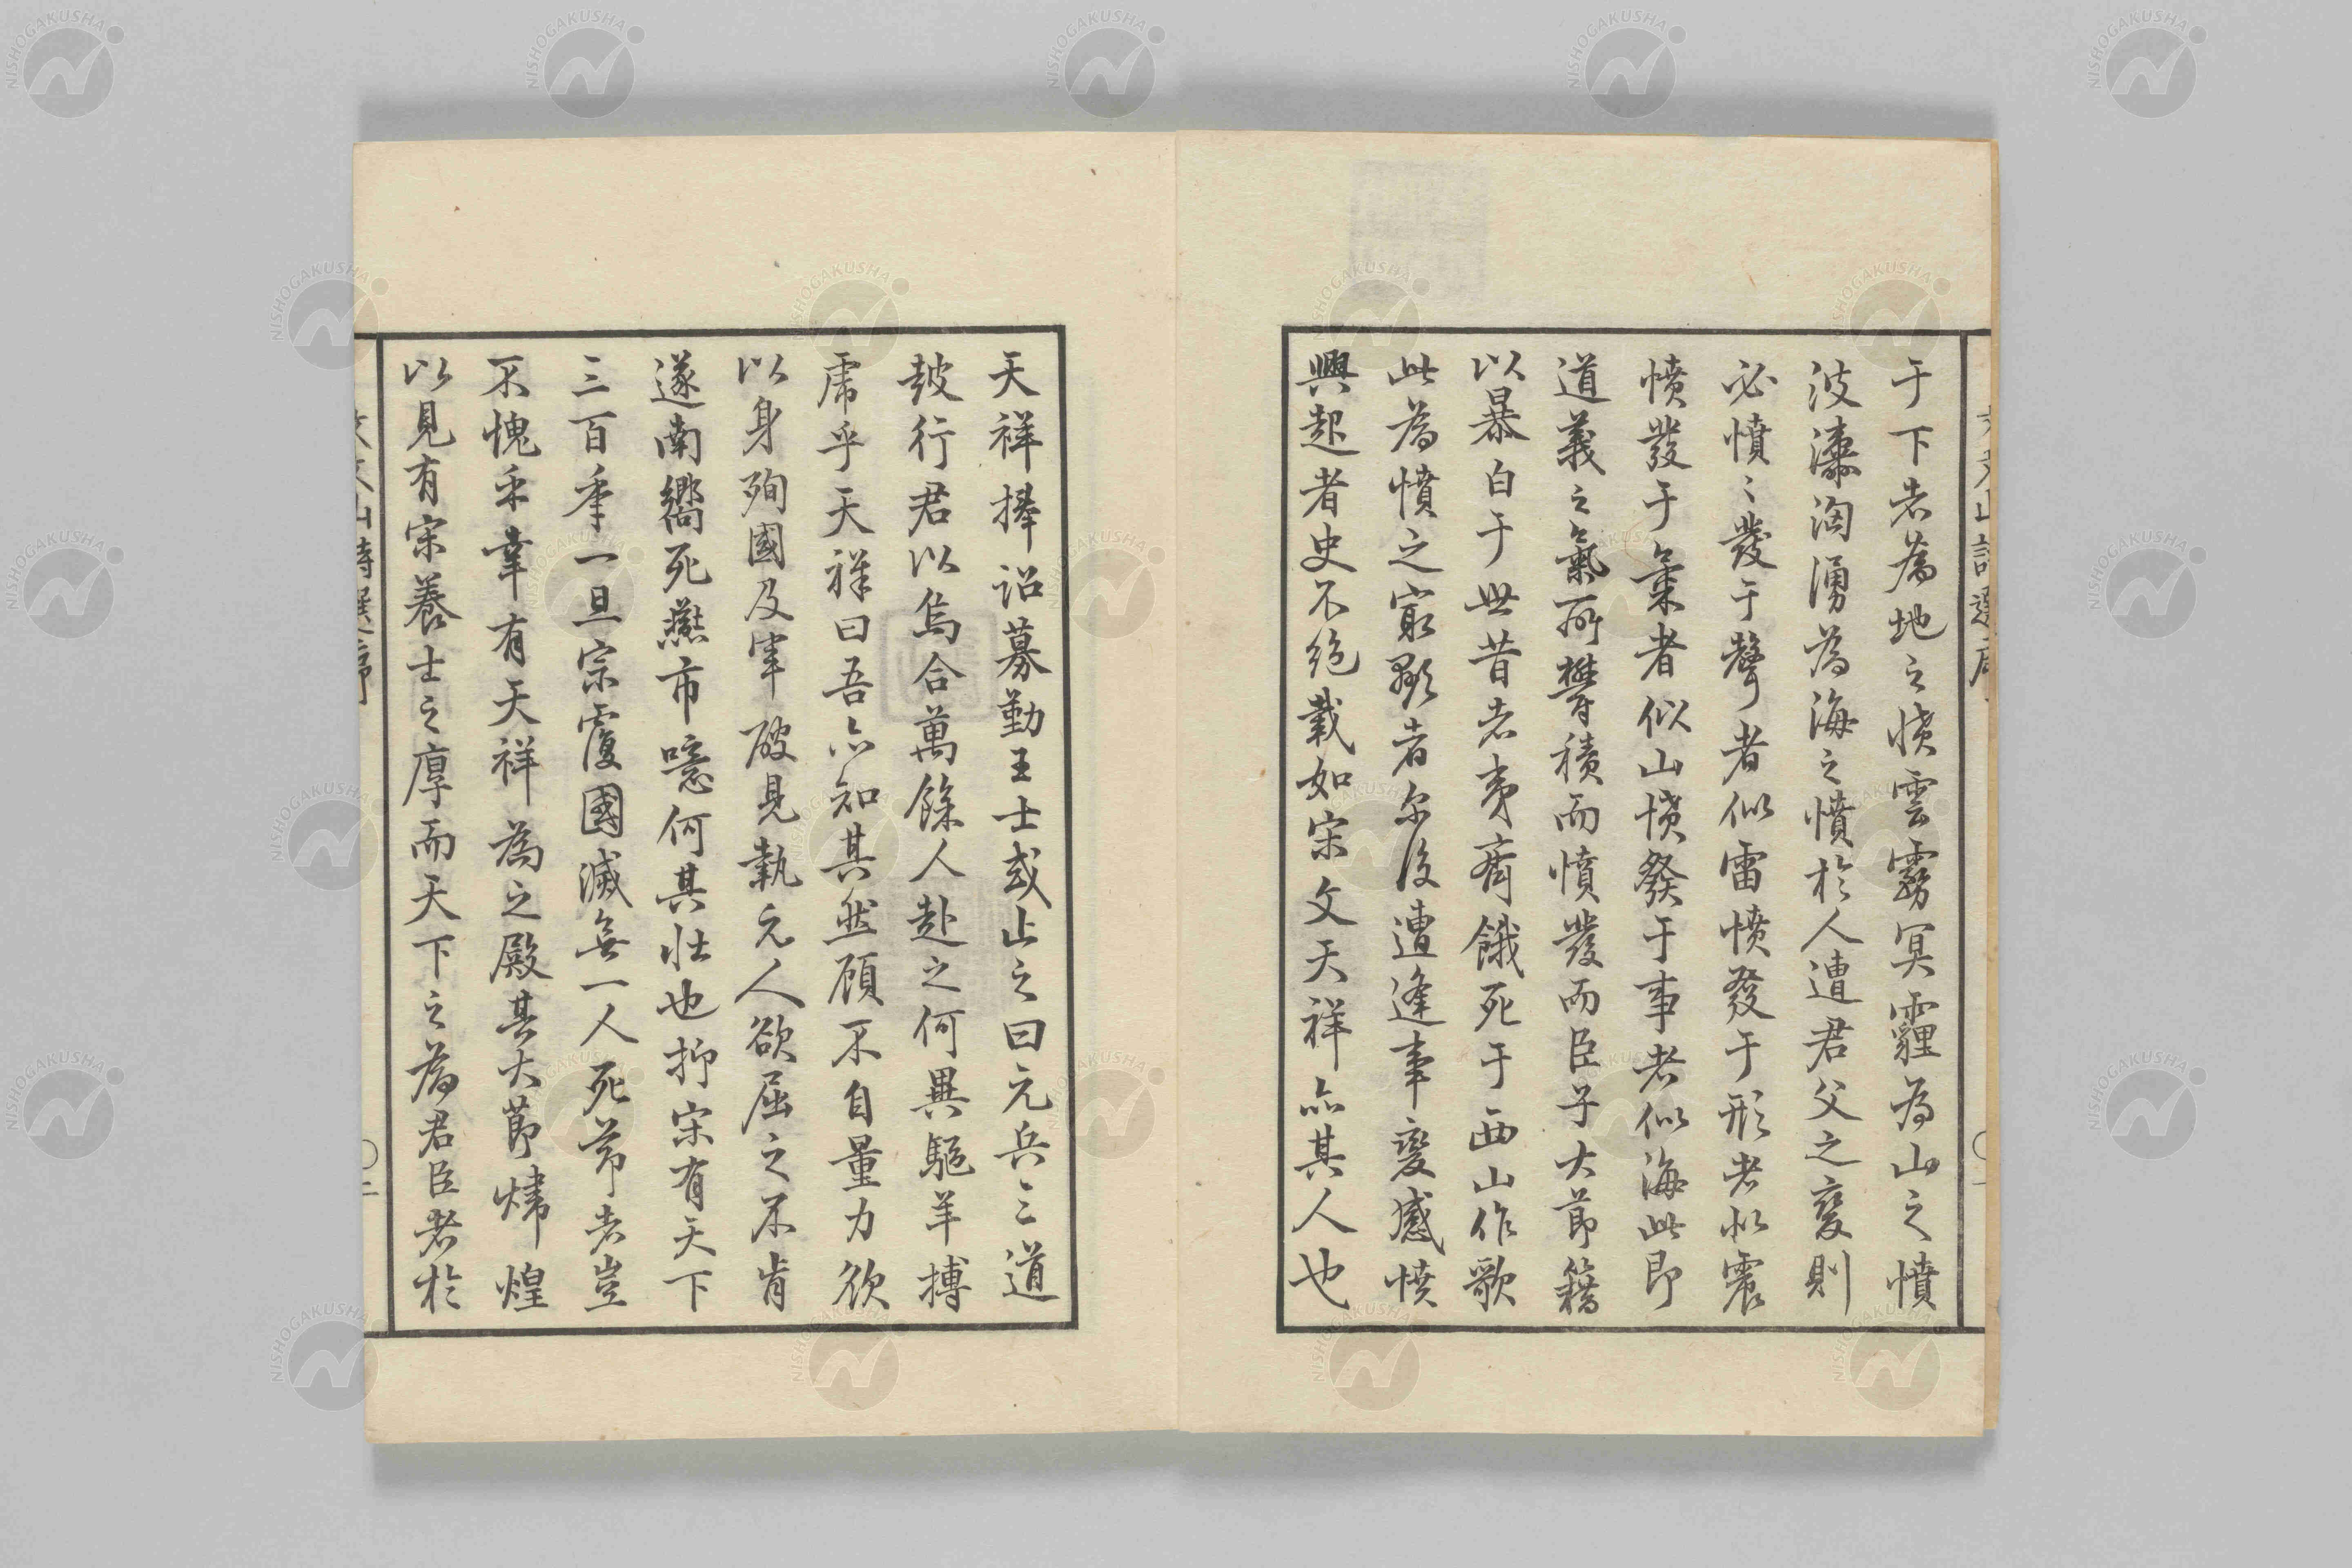 于下者為地之憤雲霧冥霾為山之憤
波濤洶湧為海之憤於人遭君父之變則
必憤〻發于聲者似雷憤發于形者似震
憤發于氣者似山憤發于事者似海此即
道義之氣所鬱積而憤發而臣子大節籍
以暴白于世昔者夷齊餓死于西山作歌
此為憤之最顯者尔後遭逢事變感憤
興起者史不絶載如宋文天祥亦其人也
天祥捧詔募勤王士或止之曰元兵三道
鼓行君以烏合萬餘人赴之何異驅羊搏
虎乎天祥曰吾亦知其然顧不自量力欲
以身殉國及軍破見執元人欲屈之不肯
遂南嚮死燕市噫何其壮也抑宋有天下
三百年一旦宗覆國滅無一人死節者豈
不愧乎幸有天祥為之殿其大節煒煌
以見有宋養士之厚而天下之為君臣者於